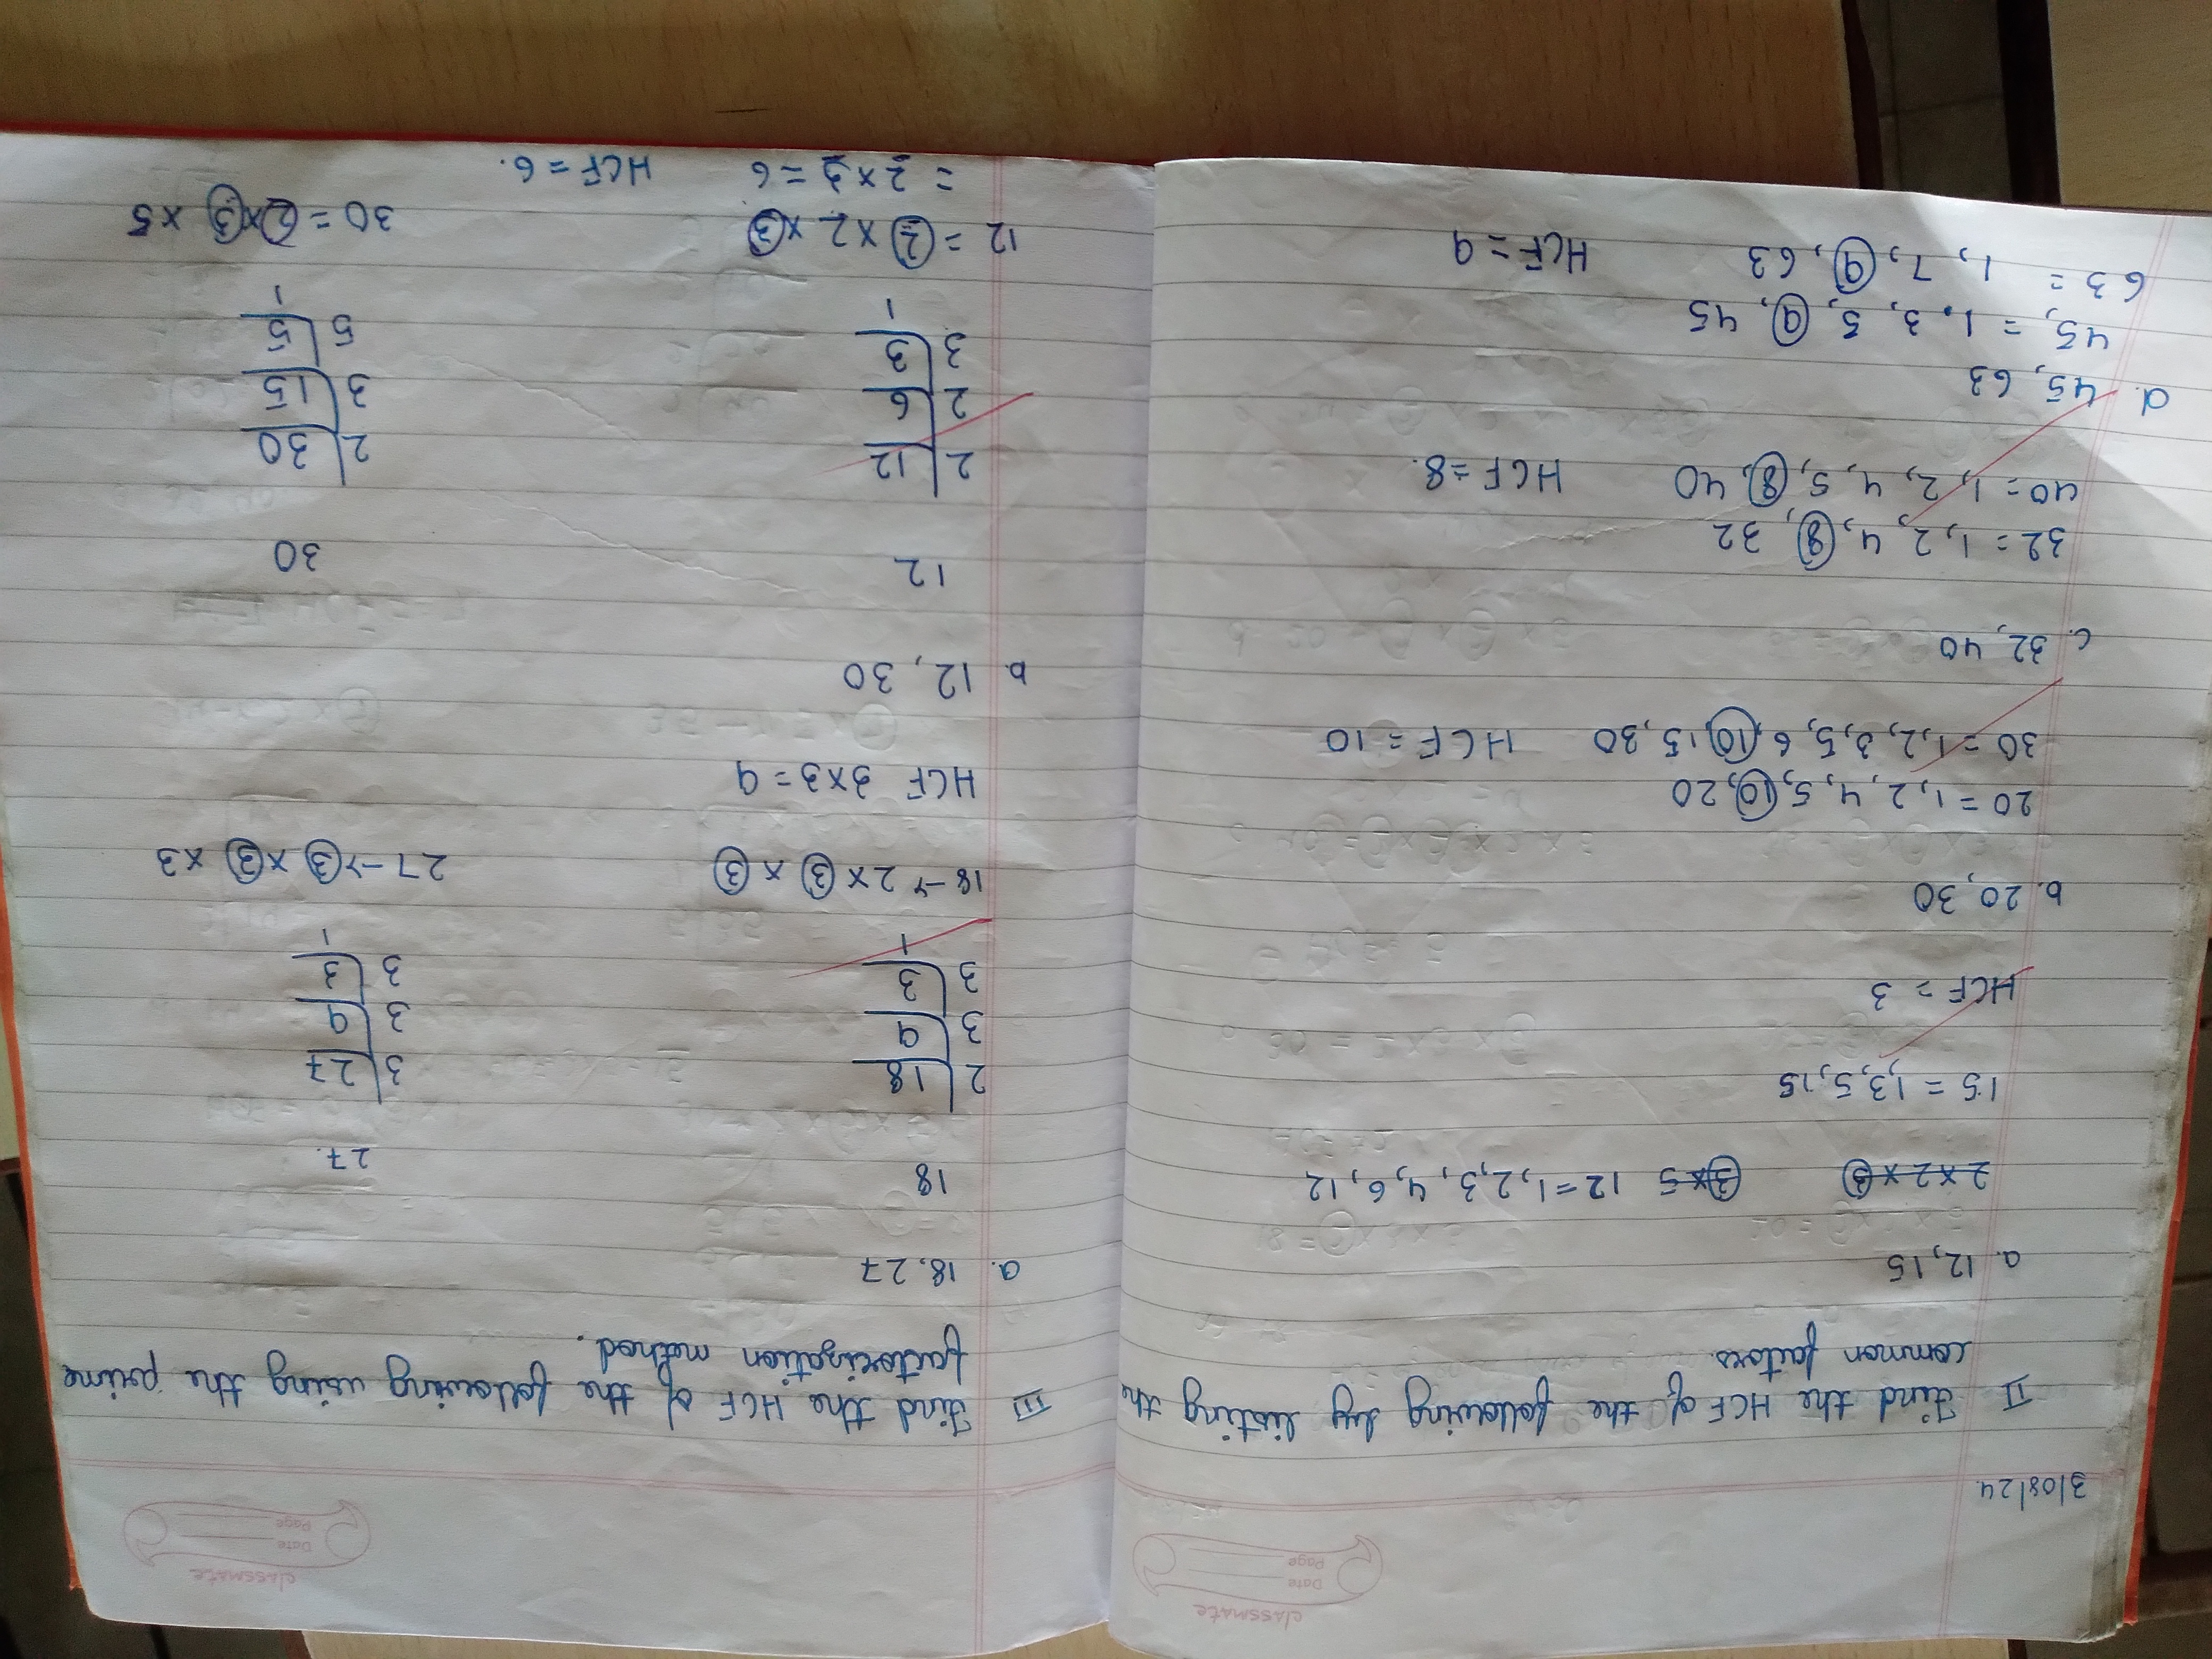 classmate
Date
Page
3/08/24
II Find the HCF of the following by listing the
common factors.
a. 12, 15
2 × 2 × 3 3 × 5 12 = 1, 2, 3, 4, 6, 12
15 = 1, 3, 5, 15
HCF = 3
b. 20, 30
20 = 1, 2, 4, 5, 10, 20
30 = 1, 2, 3, 5, 6, 10, 15, 30 HCF = 10
c. 32, 40
32 = 1, 2, 4, 8, 32
40 = 1, 2, 4, 5, 8, 40 HCF = 8.
d. 45, 63
45, = 1, 3, 5, 9, 45
63 = 1, 7, 9, 63 HCF = 9
classmate
Date
Page
III Find the HCF of the following using the prime
factorization method.
a. 18, 27
18 27.
2 | 18 3 | 27
3 | 9 3 | 9
3 | 3 3 | 3
1 1
18 → 2 × 3 × 3 27 → 3 × 3 × 3
HCF 3 × 3 = 9
b. 12, 30
12 30
2 | 12 2 | 30
2 | 6 3 | 15
3 | 3 5 | 5
1 1
12 = 2 × 2 × 3 30 = 2 × 3 × 5
= 2 × 3 = 6 HCF = 6.